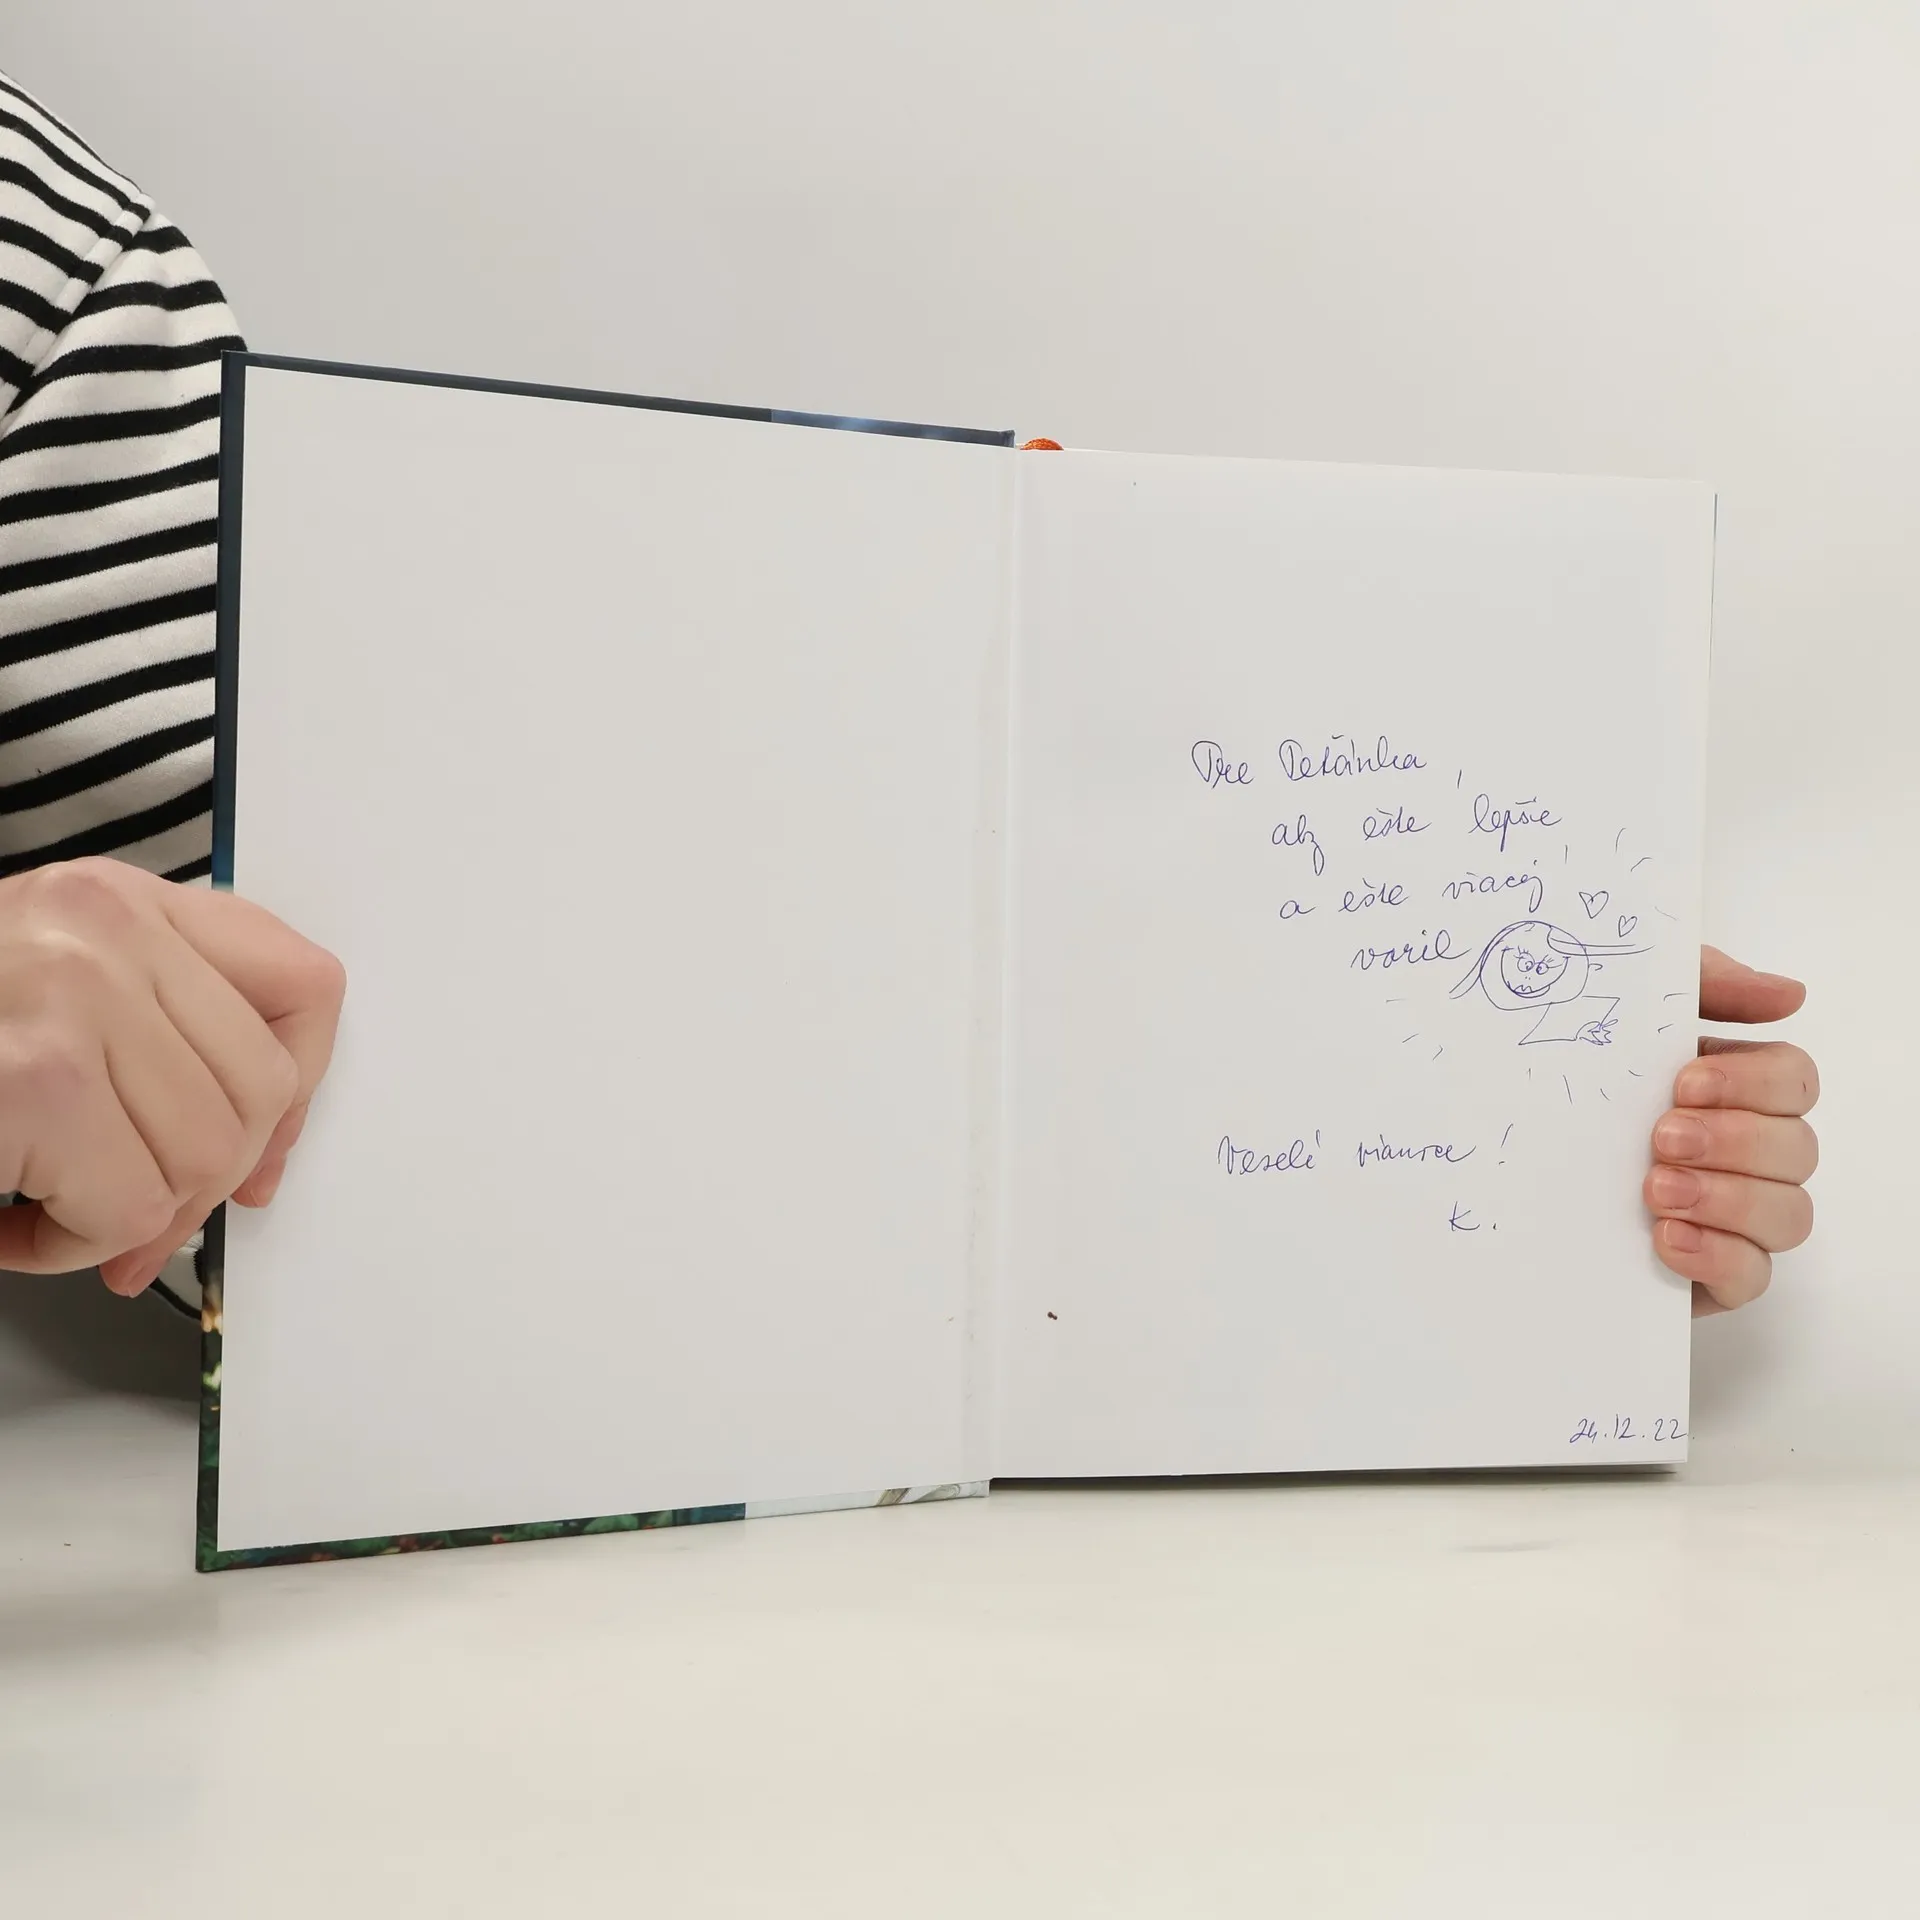 Pre Peťánka,
aby ešte lepšie
a ešte viacej
varil
Veselé vianoce!
K.
24.12.22.